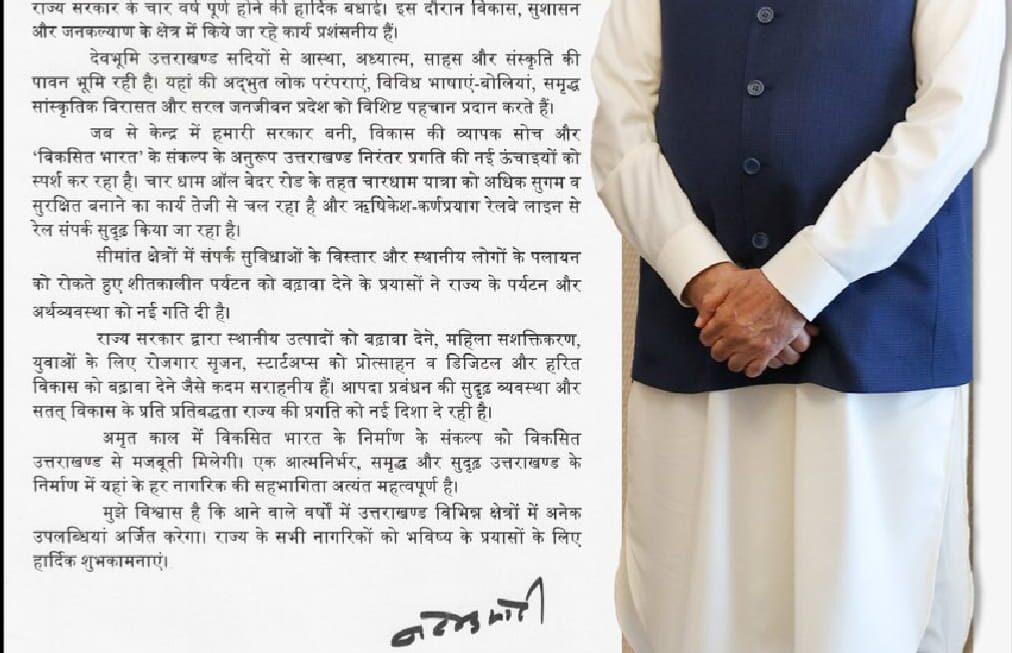 राज्य सरकार के चार वर्ष पूर्ण होने की हार्दिक बधाई। इस दौरान विकास, सुशासन
और जनकल्याण के क्षेत्र में किये जा रहे कार्य प्रशंसनीय हैं।
देवभूमि उत्तराखण्ड सदियों से आस्था, अध्यात्म, साहस और संस्कृति की
पावन भूमि रही है। यहां की अद्भुत लोक परंपराएं, विविध भाषाएं-बोलियां, समृद्ध
सांस्कृतिक विरासत और सरल जनजीवन प्रदेश को विशिष्ट पहचान प्रदान करते हैं।
जब से केन्द्र में हमारी सरकार बनी, विकास की व्यापक सोच और
‘विकसित भारत’ के संकल्प के अनुरूप उत्तराखण्ड निरंतर प्रगति की नई ऊंचाइयों को
स्पर्श कर रहा है। चार धाम ऑल वेदर रोड के तहत चारधाम यात्रा को अधिक सुगम व
सुरक्षित बनाने का कार्य तेजी से चल रहा है और ऋषिकेश-कर्णप्रयाग रेलवे लाइन से
रेल संपर्क सुदृढ़ किया जा रहा है।
सीमांत क्षेत्रों में संपर्क सुविधाओं के विस्तार और स्थानीय लोगों के पलायन
को रोकते हुए शीतकालीन पर्यटन को बढ़ावा देने के प्रयासों ने राज्य के पर्यटन और
अर्थव्यवस्था को नई गति दी है।
राज्य सरकार द्वारा स्थानीय उत्पादों को बढ़ावा देने, महिला सशक्तिकरण,
युवाओं के लिए रोजगार सृजन, स्टार्टअप्स को प्रोत्साहन व डिजिटल और हरित
विकास को बढ़ावा देने जैसे कदम सराहनीय हैं। आपदा प्रबंधन की सुदृढ़ व्यवस्था और
सतत् विकास के प्रति प्रतिबद्धता राज्य की प्रगति को नई दिशा दे रही है।
अमृत काल में विकसित भारत के निर्माण के संकल्प को विकसित
उत्तराखण्ड से मजबूती मिलेगी। एक आत्मनिर्भर, समृद्ध और सुदृढ़ उत्तराखण्ड के
निर्माण में यहां के हर नागरिक की सहभागिता अत्यंत महत्वपूर्ण है।
मुझे विश्वास है कि आने वाले वर्षों में उत्तराखण्ड विभिन्न क्षेत्रों में अनेक
उपलब्धियां अर्जित करेगा। राज्य के सभी नागरिकों को भविष्य के प्रयासों के लिए
हार्दिक शुभकामनाएं।
नरेन्द्र मोदी